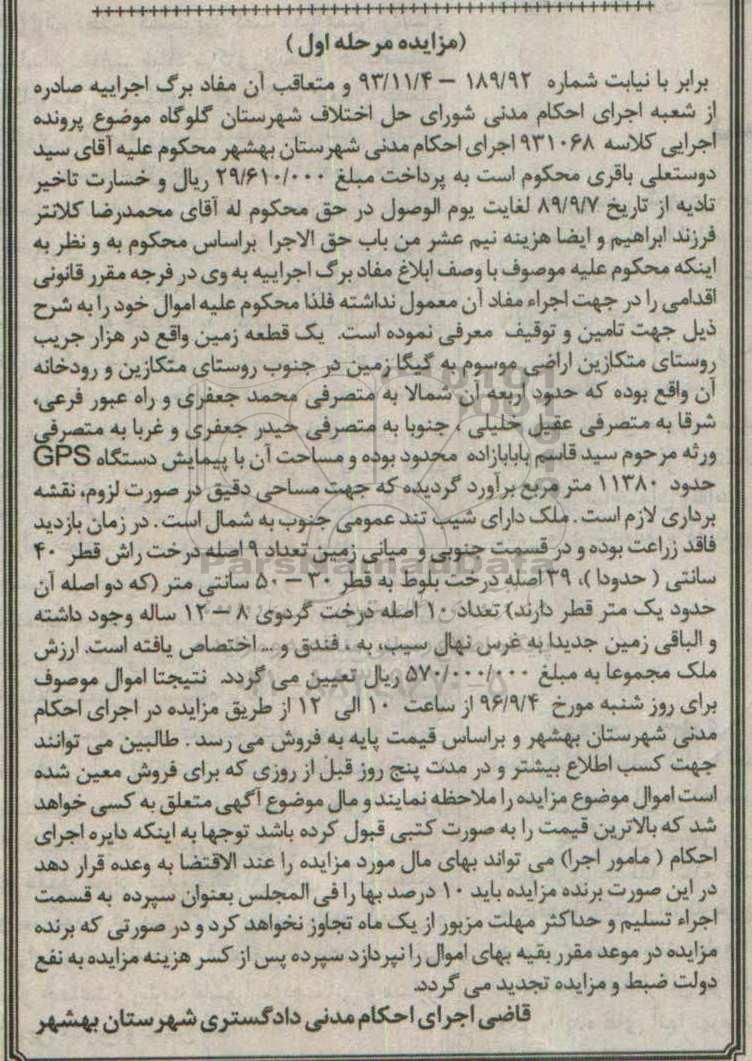 (مزایده مرحله اول)
برابر با نیابت شماره ۱۸۹/۹۲ – ۹۳/۱۱/۴ و متعاقب آن مفاد برگ اجراییه صادره
از شعبه اجرای احکام مدنی شورای حل اختلاف شهرستان گلوگاه موضوع پرونده
اجرایی کلاسه ۹۳۱۰۶۸ اجرای احکام مدنی شهرستان بهشهر محکوم علیه آقای سید
دوستعلی باقری محکوم است به پرداخت مبلغ ۲۹/۶۱۰/۰۰۰ ریال و خسارت تاخیر
تادیه از تاریخ ۸۹/۹/۷ لغایت یوم الوصول در حق محکوم له آقای محمدرضا کلانتر
فرزند ابراهیم و ایضا هزینه نیم عشر من باب حق الاجرا براساس محکوم به و نظر به
اینکه محکوم علیه موصوف با وصف ابلاغ مفاد برگ اجراییه به وی در فرجه مقرر قانونی
اقدامی را در جهت اجراء مفاد آن معمول نداشته فلذا محکوم علیه اموال خود را به شرح
ذیل جهت تامین و توقیف معرفی نموده است. یک قطعه زمین واقع در هزار جریب
روستای متکازین اراضی موسوم به گیگا زمین در جنوب روستای متکازین و رودخانه
آن واقع بوده که حدود اربعه آن شمالا به متصرفی محمد جعفری و راه عبور فرعی،
شرقا به متصرفی عقیل خلیلی ، جنوبا به متصرفی حیدر جعفری و غربا به متصرفی
ورثه مرحوم سید قاسم بابابازاده محدود بوده و مساحت آن با پیمایش دستگاه GPS
حدود ۱۱۳۸۰ متر مربع برآورد گردیده که جهت مساحی دقیق در صورت لزوم، نقشه
برداری لازم است . ملک دارای شیب تند عمومی جنوب به شمال است . در زمان بازدید
فاقد زراعت بوده و در قسمت جنوبی و میانی زمین تعداد ۹ اصله درخت راش قطر ۴۰
سانتی ( حدودا )، ۳۹ اصله درخت بلوط به قطر ۳۰ – ۵۰ سانتی متر (که دو اصله آن
حدود یک متر قطر دارند) تعداد ۱۰ اصله درخت گردوی ۸ – ۱۲ ساله وجود داشته
و الباقی زمین جدیدا به غرس نهال سیب، به ، فندق و ... اختصاص یافته است. ارزش
ملک مجموعا به مبلغ ۵۷۰/۰۰۰/۰۰۰ ریال تعیین می گردد. نتیجتا اموال موصوف
برای روز شنبه مورخ ۹۶/۹/۴ از ساعت ۱۰ الی ۱۲ از طریق مزایده در اجرای احکام
مدنی شهرستان بهشهر و براساس قیمت پایه به فروش می رسد . طالبین می توانند
جهت کسب اطلاع بیشتر و در مدت پنج روز قبل از روزی که برای فروش معین شده
است اموال موضوع مزایده را ملاحظه نمایند و مال موضوع آگهی متعلق به کسی خواهد
شد که بالاترین قیمت را به صورت کتبی قبول کرده باشد توجها به اینکه دایره اجرای
احکام ( مامور اجرا) می تواند بهای مال مورد مزایده را عند الاقتضا به وعده قرار دهد
در این صورت برنده مزایده باید ۱۰ درصد بها را فی المجلس بعنوان سپرده به قسمت
اجراء تسلیم و حداکثر مهلت مزبور از یک ماه تجاوز نخواهد کرد و در صورتی که برنده
مزایده در موعد مقرر بقیه بهای اموال را نپردازد سپرده پس از کسر هزینه مزایده به نفع
دولت ضبط و مزایده تجدید می گردد.
قاضی اجرای احکام مدنی دادگستری شهرستان بهشهر
ParsNamadData